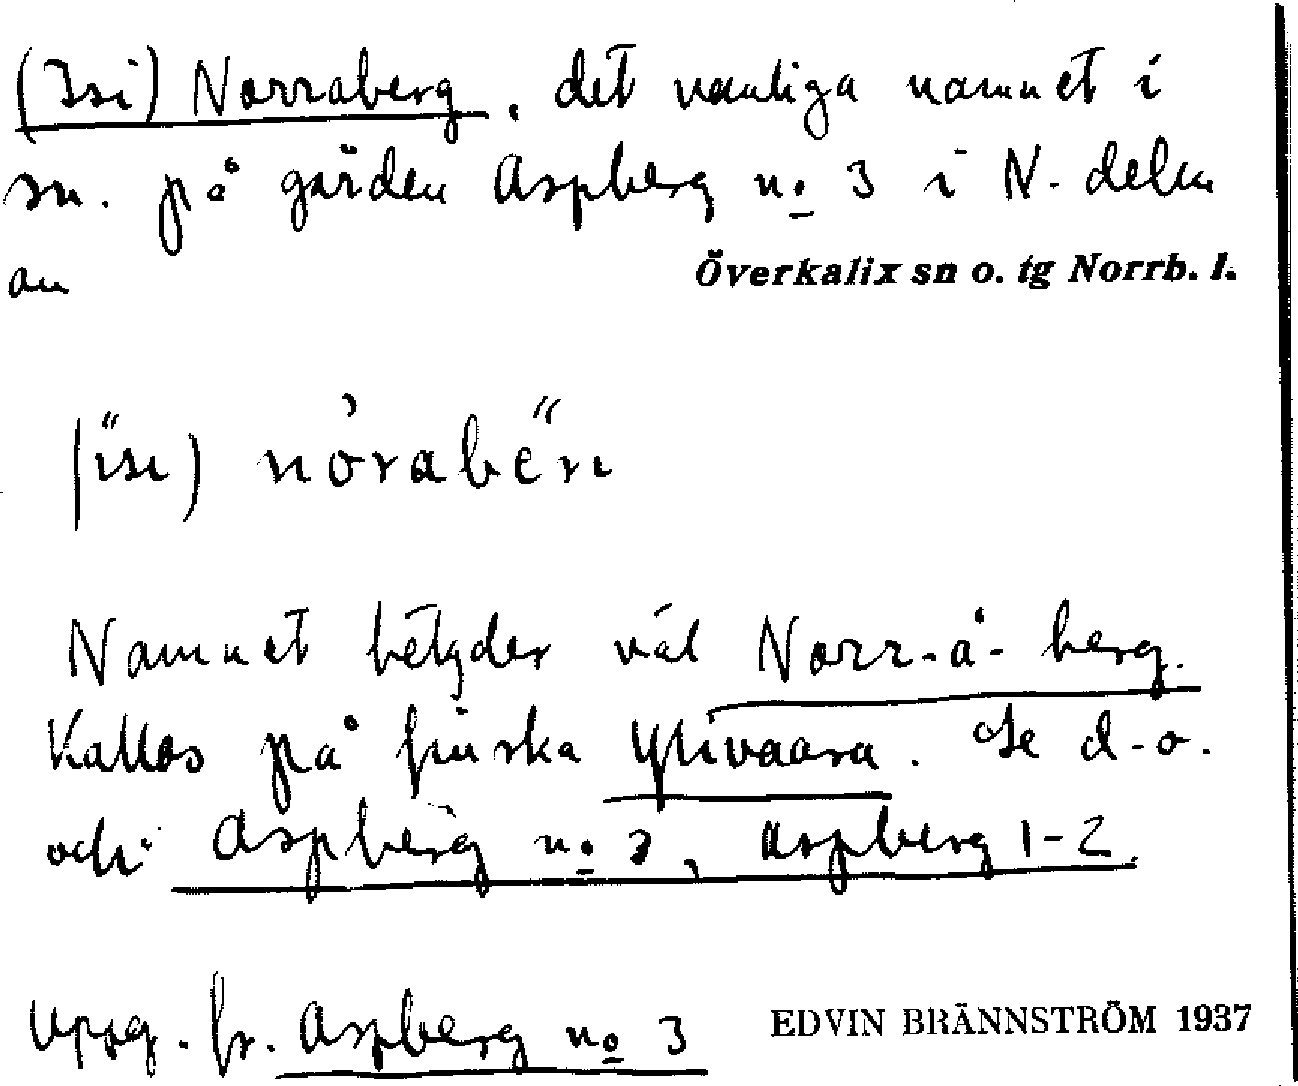 (Isi) Norraberg, det vanliga namnet i
sn. på gården Aspberg nº 3 i N. delen
av
Överkalix sn o. tg Norrb. l.
Namnet betyder väl Norr-å-berg.
Kallas på finska Ylivaara. Se d.o.
och Aspberg nº 3, Aspberg 1-2.
Uppg. fr. Aspberg nº 3
EDVIN BRÄNNSTRÖM 1937